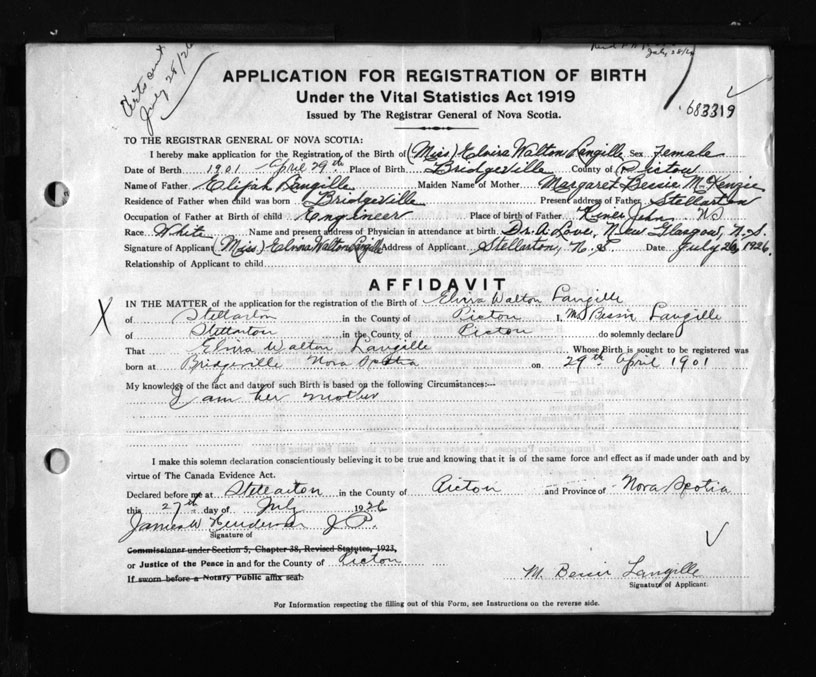 July 28/26
Certs sent
July 28/26
APPLICATION FOR REGISTRATION OF BIRTH
Under the Vital Statistics Act 1919
683319
Issued by The Registrar General of Nova Scotia.
TO THE REGISTRAR GENERAL OF NOVA SCOTIA:
I hereby make application for the Registration of the Birth of (Miss) Elvira Walton Langille Sex Female
Date of Birth 1901 April 29th Place of Birth Bridgeville County of Pictou
Name of Father Elijah Langille Maiden Name of Mother Margaret Bessie McKenzie
Residence of Father when child was born Bridgeville Present address of Father Stellarton
Occupation of Father at Birth of child Engineer Place of birth of Father River John NS
Race White Name and present address of Physician in attendance at birth Dr. A Love, New Glasgow, N.S.
Signature of Applicant (Miss) Elvira Walton Langille Address of Applicant Stellarton, N.S. Date July 26, 1926.
Relationship of Applicant to child
AFFIDAVIT
X IN THE MATTER of the application for the registration of the Birth of Elvira Walton Langille
of Stellarton in the County of Pictou I, M Bessie Langille
of Stellarton in the County of Pictou do solemnly declare
That Elvira Walton Langille Whose Birth is sought to be registered was
born at Bridgeville Nova Scotia on 29th April 1901
My knowledge of the fact and date of such Birth is based on the following Circumstances:—
I am her mother
I make this solemn declaration conscientiously believing it to be true and knowing that it is of the same force and effect as if made under oath and by
virtue of The Canada Evidence Act.
Declared before me at Stellarton in the County of Pictou and Province of Nova Scotia
this 27th day of July 1926
James W Henderson J.P.
Signature of
Commissioner under Section 5, Chapter 38, Revised Statutes, 1923,
or Justice of the Peace in and for the County of Pictou
If sworn before a Notary Public affix seal.
M. Bessie Langille
Signature of Applicant.
For Information respecting the filling out of this Form, see Instructions on the reverse side.